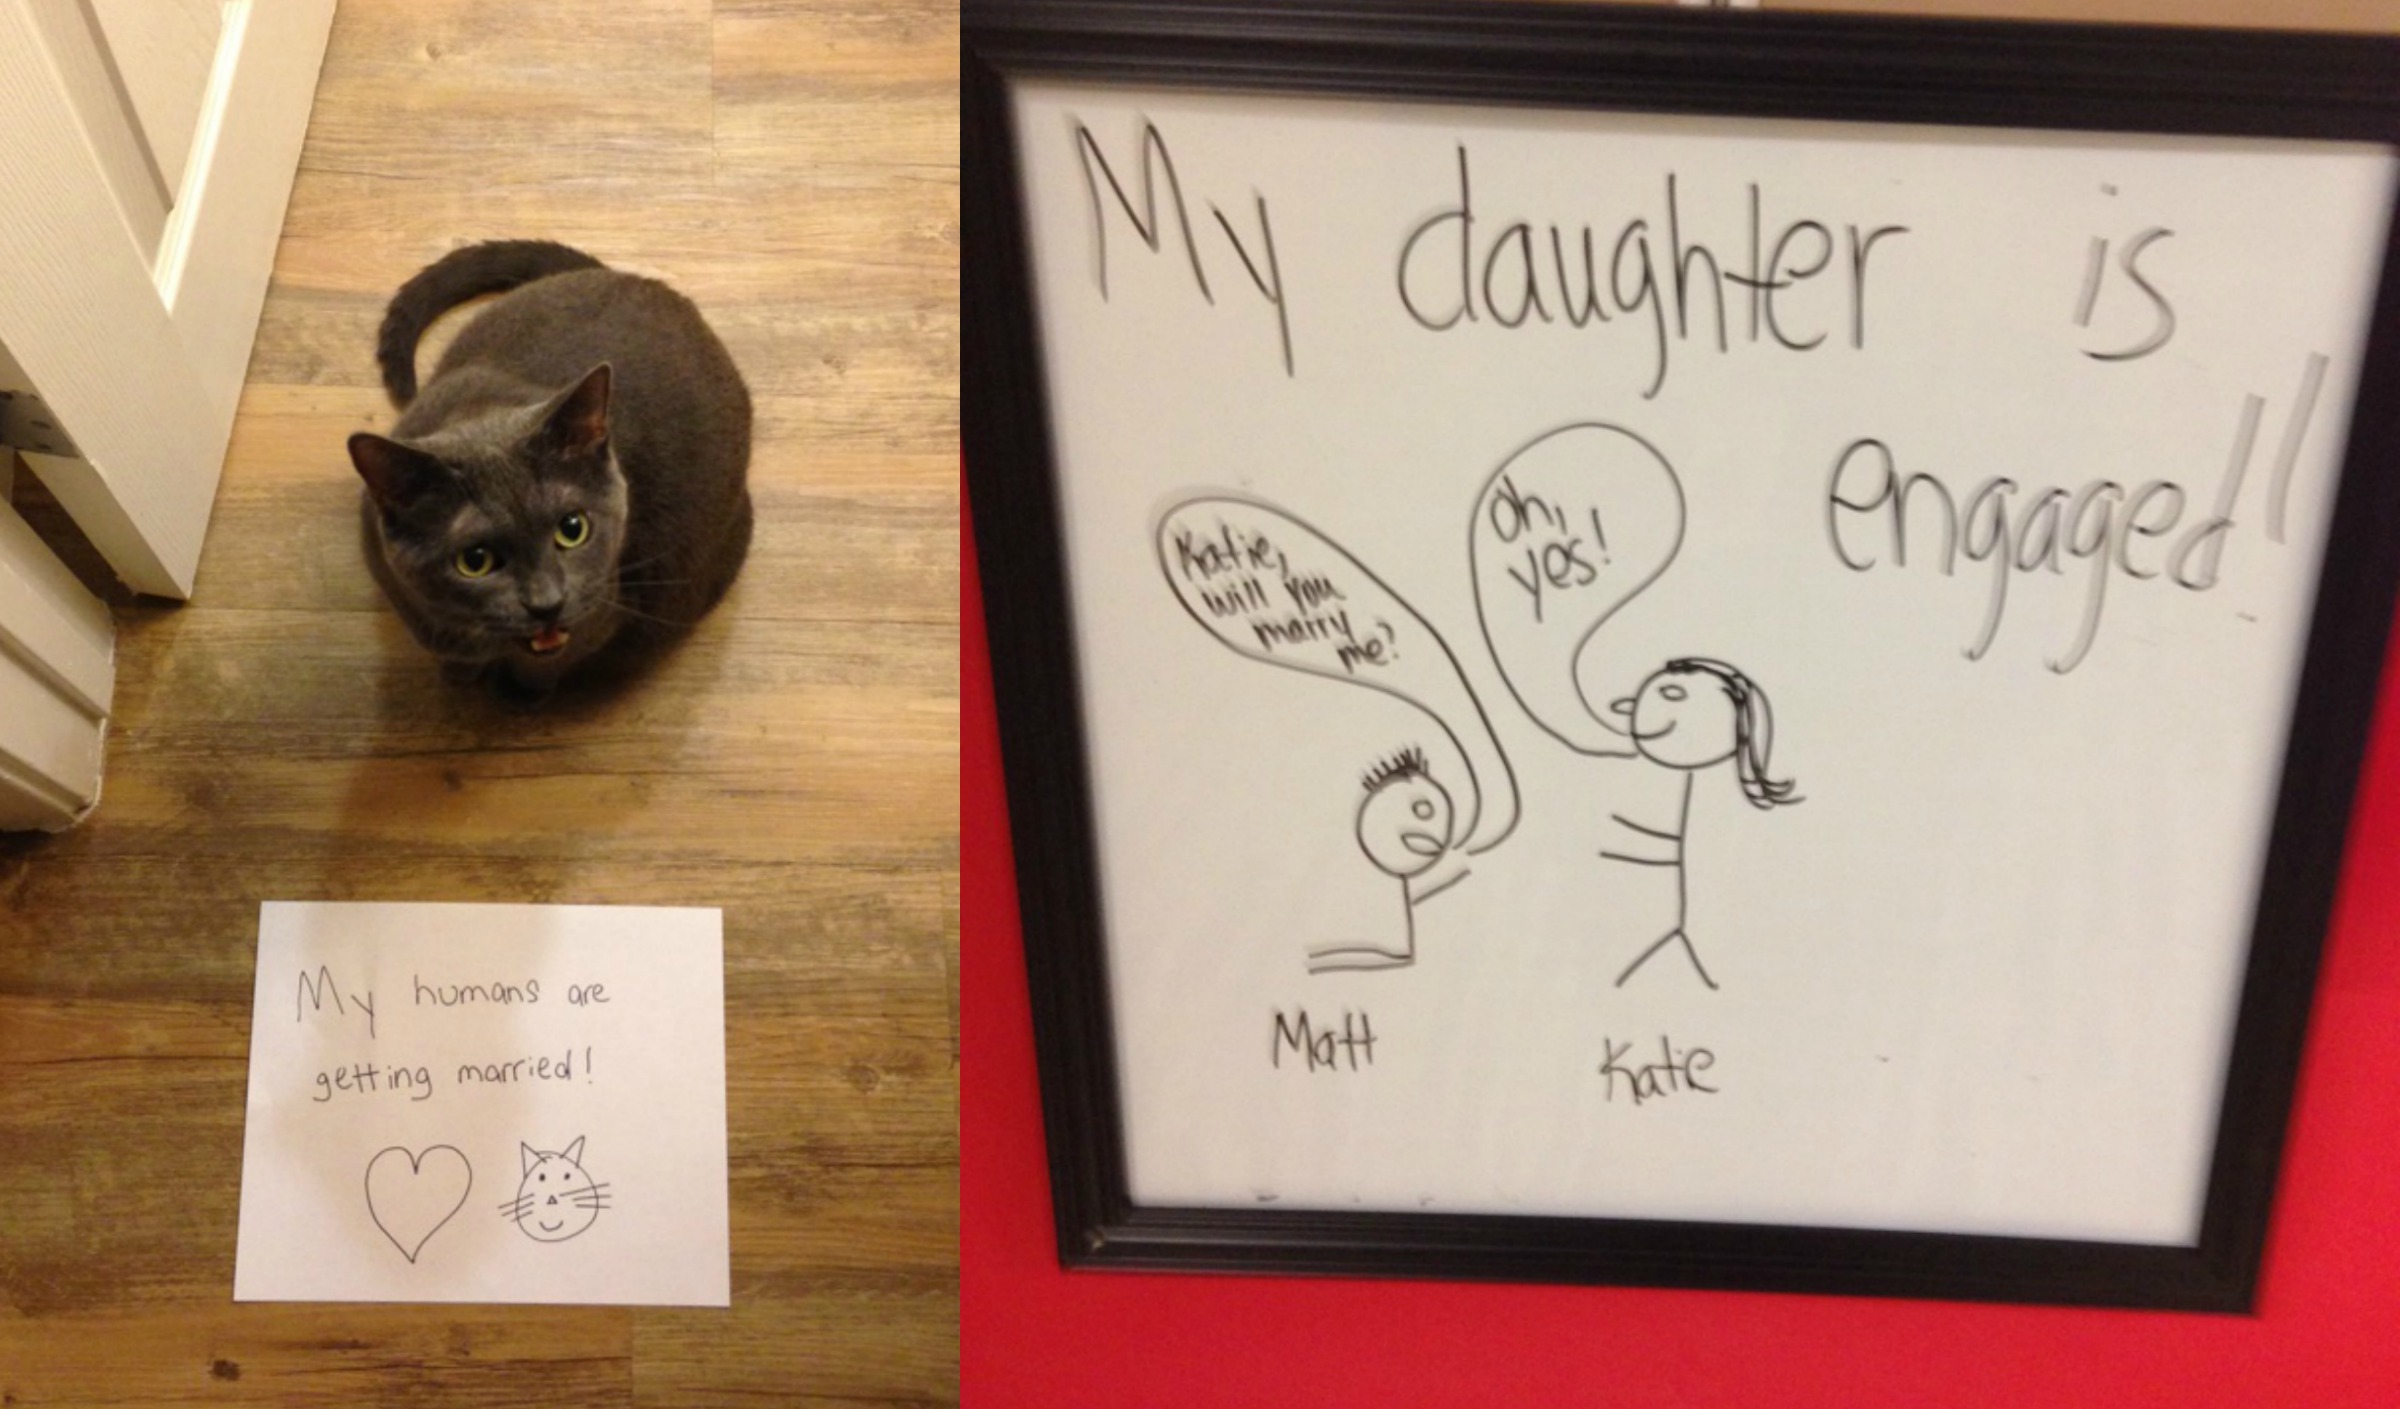 My humans are
getting married!
My daughter is
engaged!
Katie,
will you
marry
me?
oh,
yes!
Matt
Katie